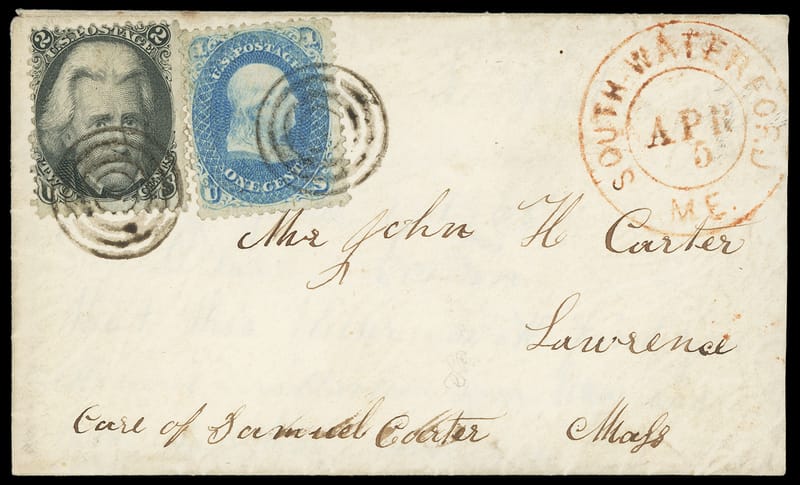 2 U.S. POSTAGE 2
TWO CENTS
1 U.S. POSTAGE 1
ONE CENT
SOUTH WATERFORD
APR
5
ME.
Mr John H Carter
Lawrence
Care of Samuel Carter Mass